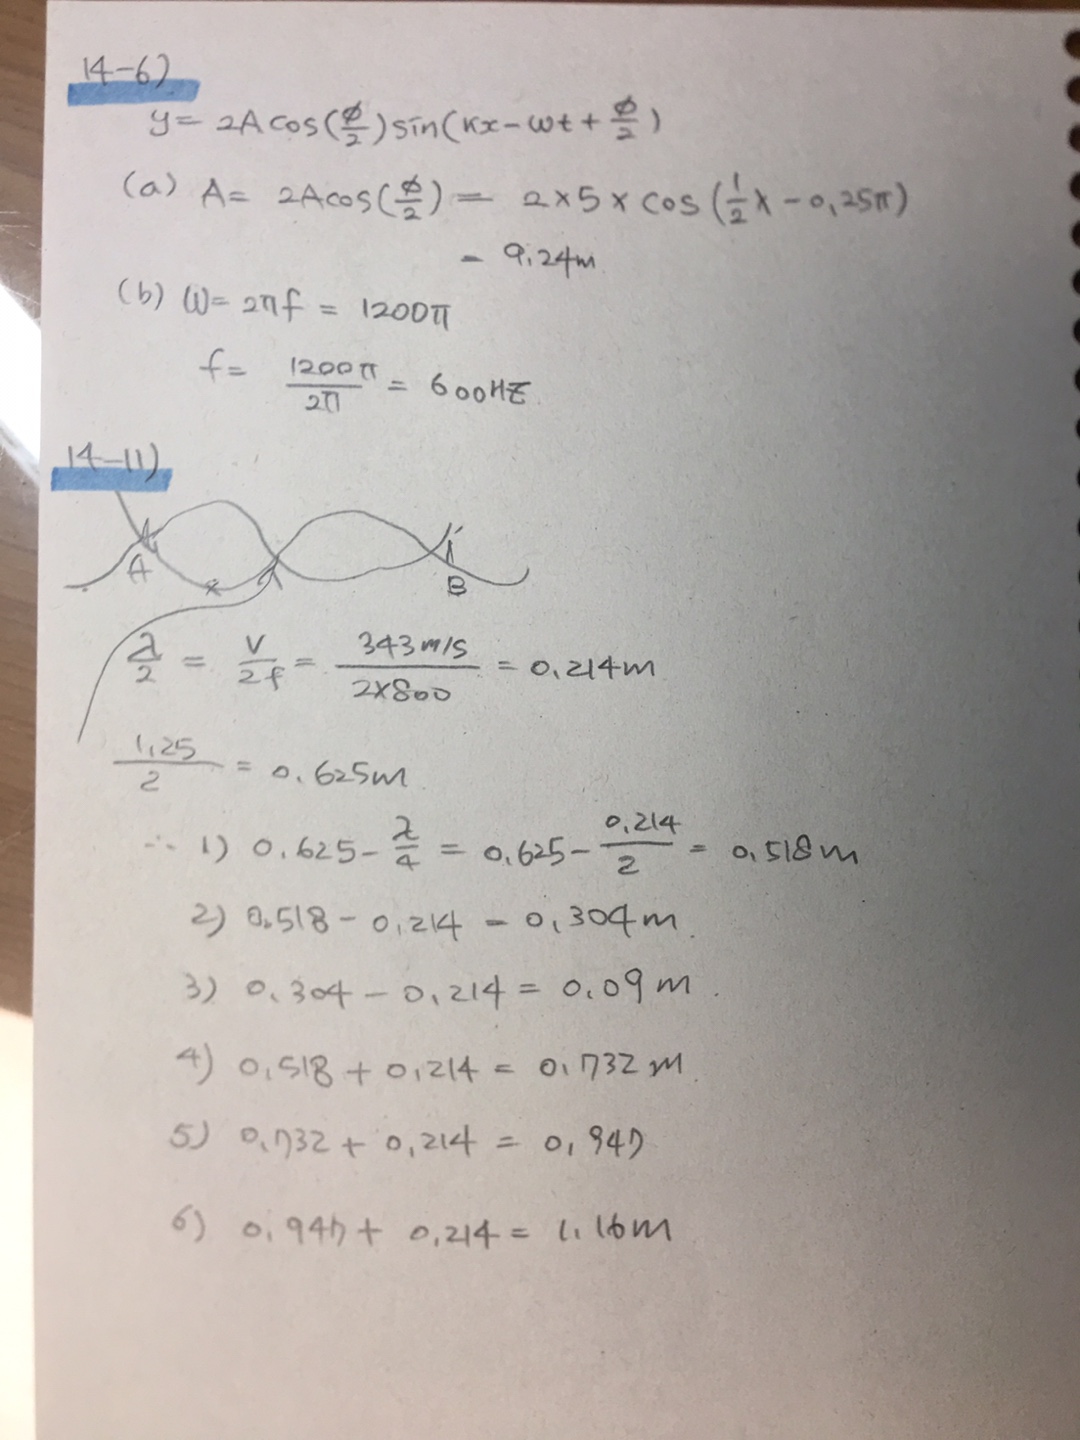 14-6)
y= 2Acos(ϕ/2)sin(kx-ωt+ϕ/2)
(a) A= 2Acos(ϕ/2) = 2×5×cos(1/2×-0,25π)
= 9.24m
(b) ω= 2πf = 1200π
f= 1200π/2π = 600HZ.
14-11)
A
B
λ/2 = V/2f = 343m/s/2×800 = 0,214m
1,25/2 = 0.625m
∴ 1) 0.625-λ/4 = 0,625-0,214/2 = 0,518m
2) 0.518-0,214 = 0,304m.
3) 0.304-0,214 = 0.09m.
4) 0,518+0,214 = 0,732m.
5) 0,732+0,214 = 0,947
6) 0,947+0,214 = 1.16m